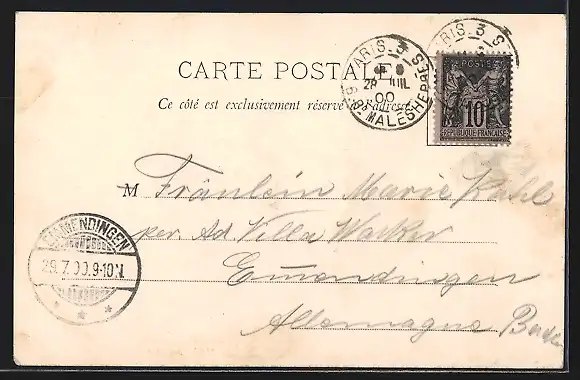 PARIS. 3
CARTE POSTALE
28 JUIL
00
Bd. MALESHERBES
PARIS. 3
POSTES
10
RÉPUBLIQUE FRANÇAISE
Ce côté est exclusivement réservé à l'adresse
M Fräulein Marie Kahl
per Ad. Villa Warker
Emmendingen
Allemagne Baden
EMMENDINGEN
29.7.00.9-10N.